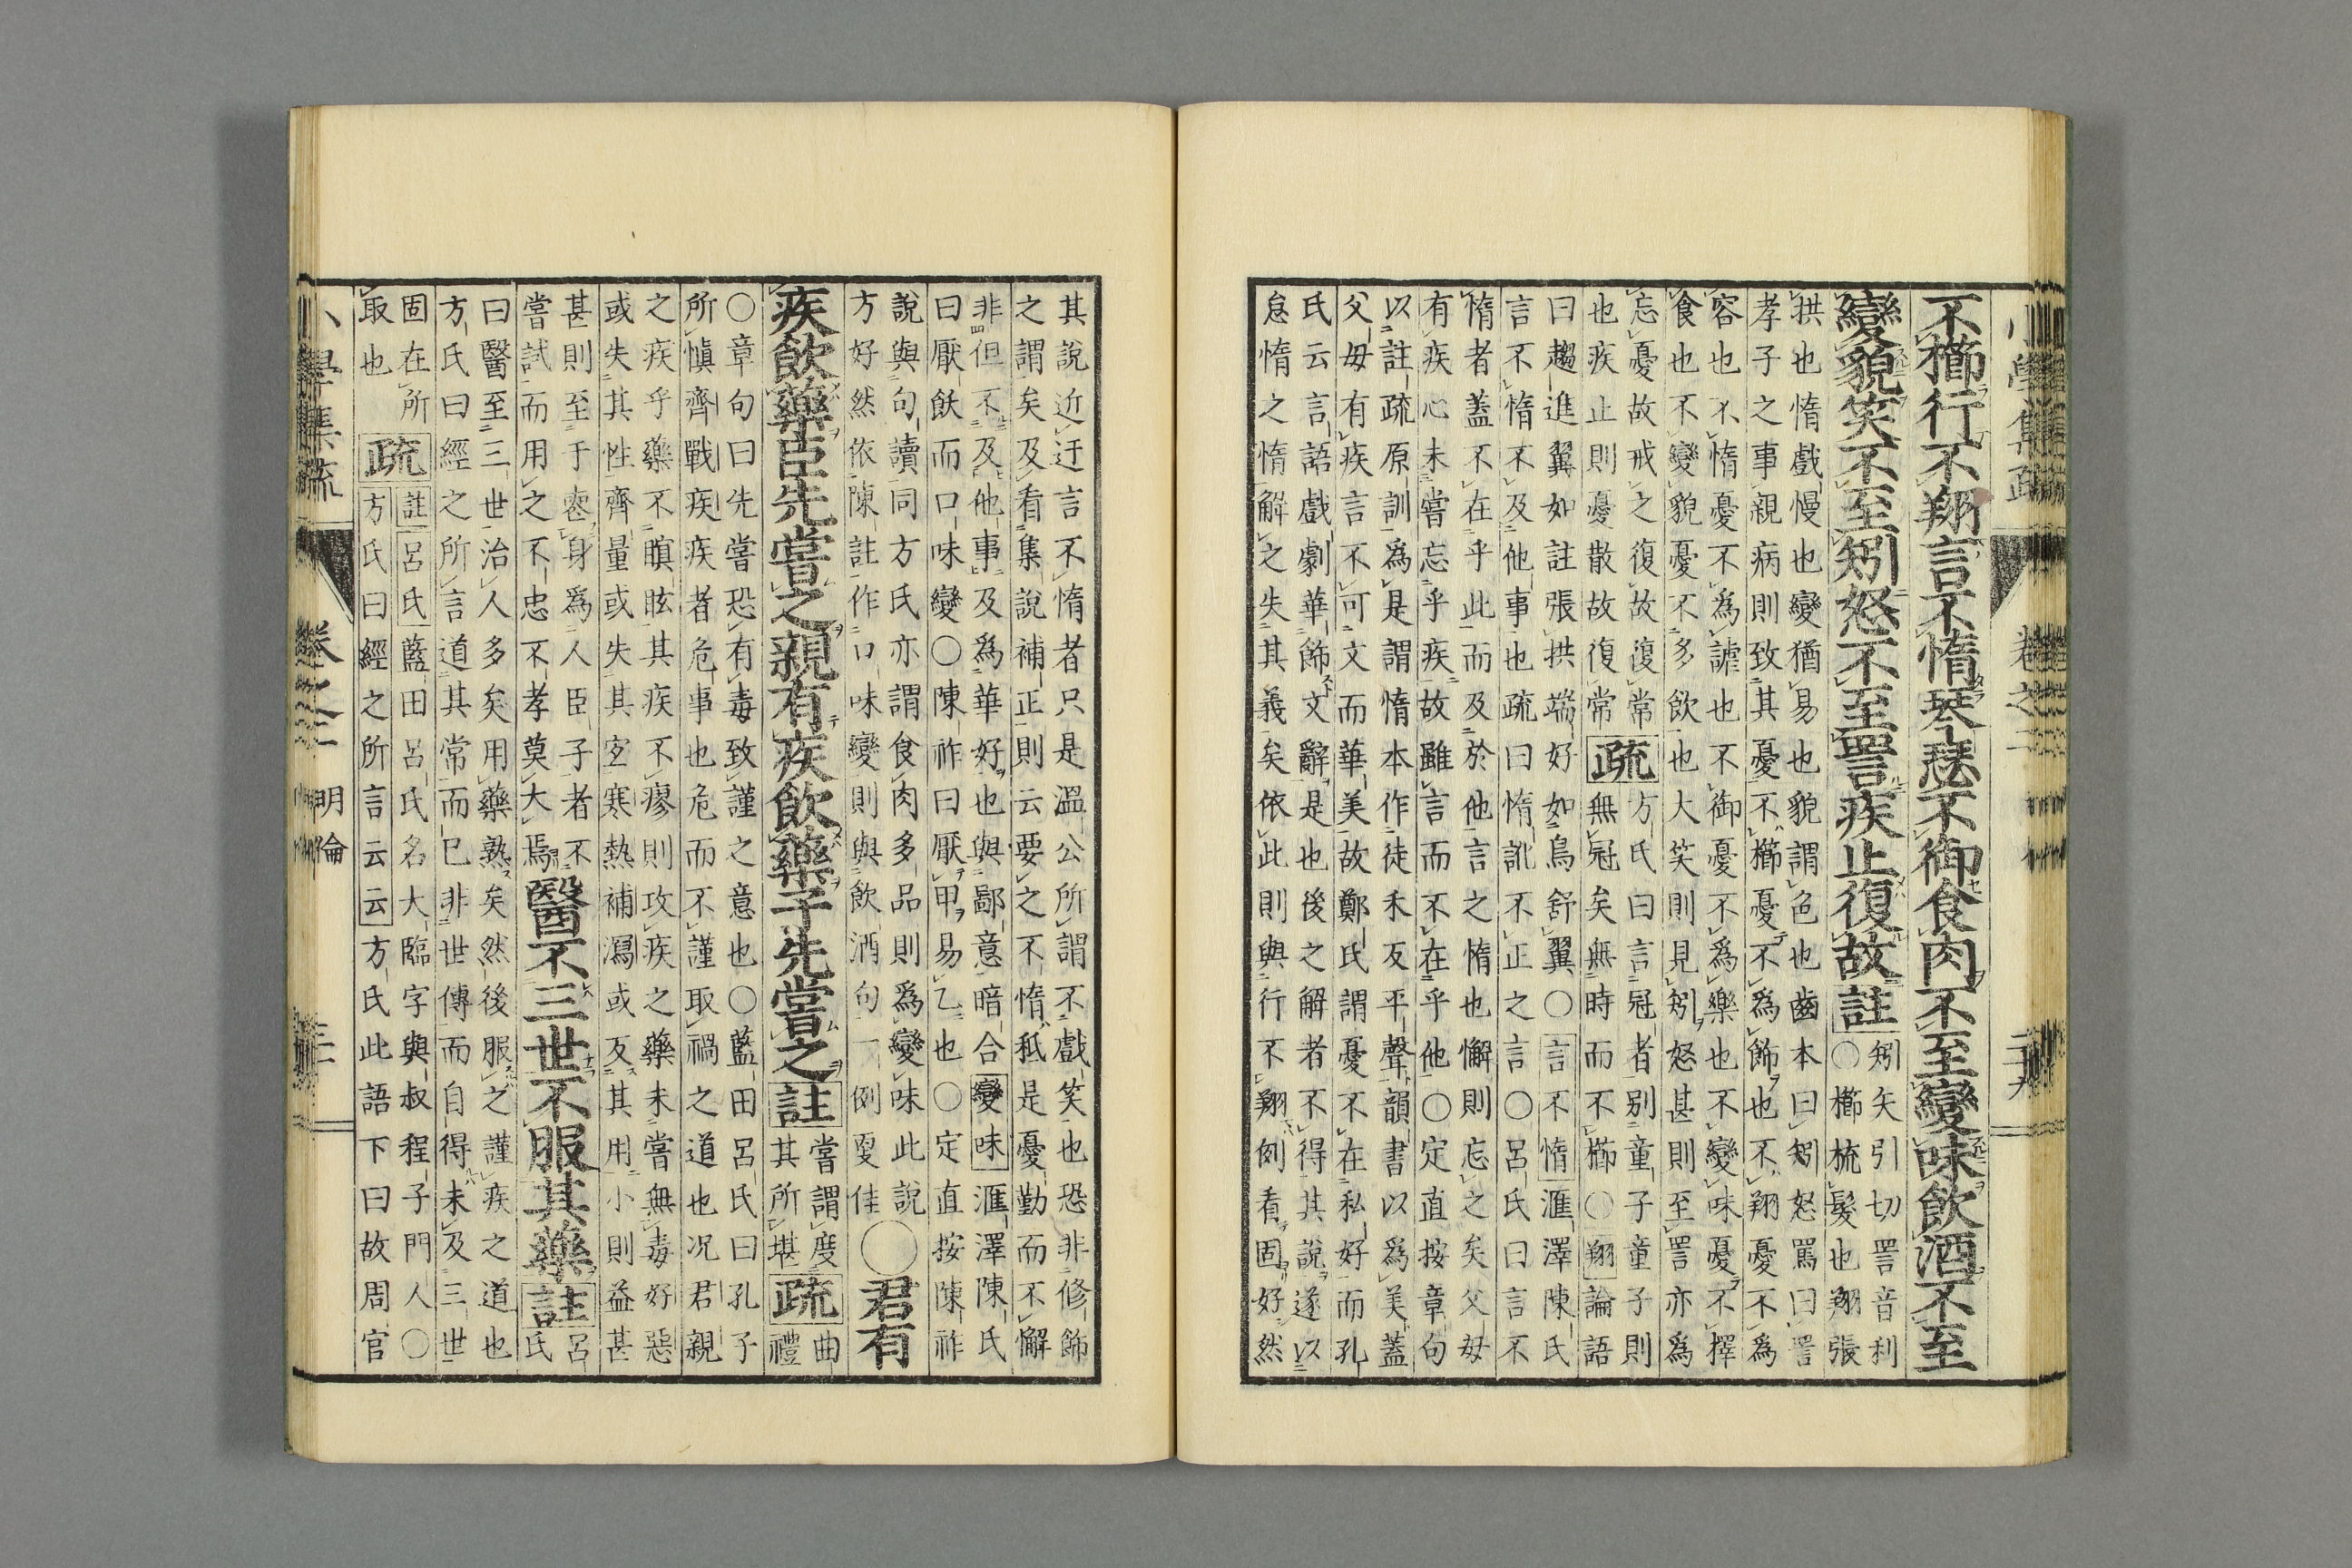 不櫛行不翔言不惰琴瑟不御食肉不至變味飲酒不至
變貌笑不至矧怒不至詈疾止復故註矧矢引切詈音利
○櫛梳髮也翔張
拱也惰戲慢也變猶易也貌謂色也齒本曰矧怒罵曰詈
孝子之事親病則致其憂不櫛憂不為飾也不翔憂不為
容也不惰憂不為謔也不御憂不為樂也不變味憂不擇
食也不變貌憂不多飲也大笑則見矧怒甚則至詈亦為
忘憂故戒之復故復常疏方氏曰言冠者別童子童子則
也疾止則憂散故復常無冠矣無時而不櫛○翔論語
曰趨進翼如註張拱端好如鳥舒翼○言不惰滙澤陳氏
言不惰不及他事也疏曰惰訛不正之言○呂氏曰言不
惰者蓋不在乎此而及於他言之惰也懈則忘之矣父母
有疾心未嘗忘乎疾故雖言而不在乎他○定直按章句
以註疏原訓為是謂惰本作徒禾反平聲韻書以為美蓋
父母有疾言不可文而華美故鄭氏謂憂不在私好而孔
氏云言語戲劇華飾文辭是也後之解者不得其說遂以
怠惰之惰解之失其義矣依此則與行不翔例看固好然
其說近迂言不惰者只是溫公所謂不戲笑也恐非修飾
之謂矣及看集說補正則云要之不惰秪是憂勤而不懈
非但不及他事及為華好也與鄙意暗合變味滙澤陳氏
曰厭飫而口味變○陳祚曰厭甲易乙也○定直按陳祚
說與句讀同方氏亦謂食肉多品則為變味此說
方好然依陳註作口味變則與飲酒句一例更佳○君有
疾飲藥臣先嘗之親有疾飲藥子先嘗之註嘗謂度
其所堪疏曲
禮
○章句曰先嘗恐有毒致謹之意也○藍田呂氏曰孔子
所慎齊戰疾疾者危事也危而不謹取禍之道也况君親
之疾乎藥不瞑眩其疾不瘳則攻疾之藥未嘗無毒好惡
或失其性齊量或失其宜寒熱補瀉或反其用小則益甚
甚則至于喪身為人臣子者不
嘗試而用之不忠不孝莫大焉醫不三世不服其藥註呂
氏
曰醫至三世治人多矣用藥熟矣然後服之謹疾之道也
方氏曰經之所言道其常而已非世傳而自得未及三世
固在所
取也疏註呂氏藍田呂氏名大臨字與叔程子門人○
方氏曰經之所言云云方氏此語下曰故周官
小學集疏
卷之二
明倫